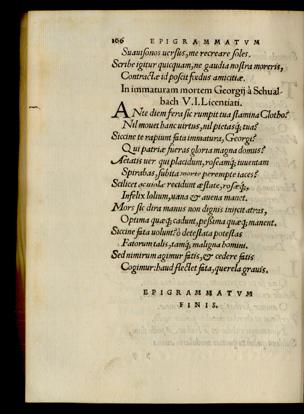 106 EPIGRAMMATVM
Suauisonos uersus, me recreare soles.
Scribe igitur quicquam, ne gaudia nostra moreris,
Contractæ id poscit fœdus amicitiæ.
In immaturam mortem Georgij à Schual-
bach V.I. Licentiati.
ANte diem fera sic rumpit tua stamina Clotho?
Nil mouet hanc uirtus, nil pietasq; tua?
Siccine te rapiunt fata immatura, Georgi?
Qui patriæ fueras gloria magna domus?
Aetatis uer qui placidum, roseamq; iuuentam
Spirabas, subita morte perempte iaces?
Scilicet recidunt æstate, rosæq;,
Infelix lolium, uana & auena manet.
Mors sic dira manus non dignis inijcit atras,
Optima quæq; cadunt, pessima quæq; manent.
Siccine fata uolunt? ô detestata potestas
Fatorum talis, tamq; maligna homini.
Sed nimirum agimur fatis, & cedere fatis
Cogimur: haud flectet fata, querela grauis.
EPIGRAMMATVM
FINIS.